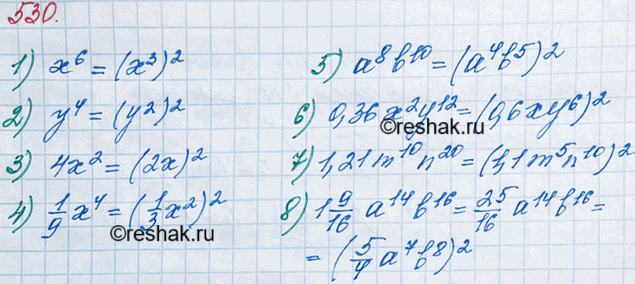 530.
1) x⁶ = (x³)²
2) y⁴ = (y²)²
3) 4x² = (2x)²
4) 1/9 x⁴ = (1/3 x²)²
5) a⁸b¹⁰ = (a⁴b⁵)²
6) 0,36x²y¹² = (0,6xy⁶)²
7) 1,21m¹⁰n²⁰ = (1,1m⁵n¹⁰)²
8) 1 9/16 a¹⁴b¹⁶ = 25/16 a¹⁴b¹⁶ =
= (5/4 a⁷b⁸)²
©reshak.ru
©reshak.ru